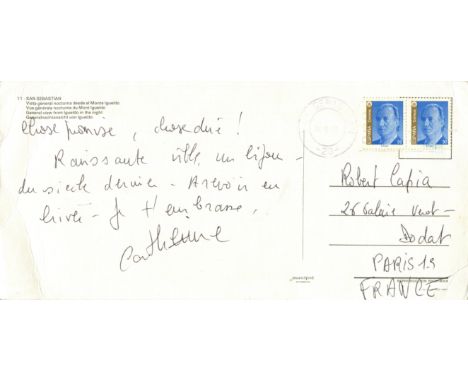 11 - SAN SEBASTIAN
Vista general nocturna desde el Monte Igueldo
Vue générale nocturne du Mont Igueldo
General view from Igueldo in the night
Chose promise, chose due !
Ravissante ville, un bijou
du siècle dernier - A revoir en
privé - Je t'embrasse,
Catherine
Robert Capia
26 Galerie Vero-
Dodat
PARIS 1.
FRANCE
ESPAÑA
ESPAÑA